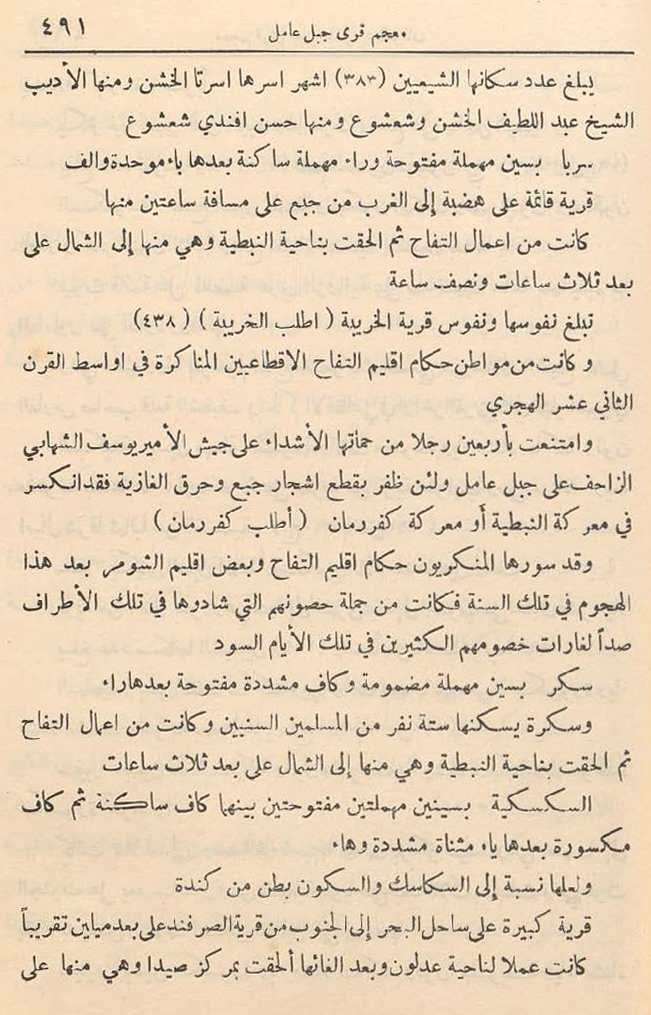 معجم قرى جبل عامل ٤٩١
يبلغ عدد سكانها الشيعيين (٣٨٣) اشهر اسرها اسرتا الخشن ومنها الأديب
الشيخ عبد اللطيف الخشن وشعشوع ومنها حسن افندي شعشوع
سربا بسين مهملة مفتوحة وراء مهملة ساكنة بعدها باء موحدة والف
قرية قائمة على هضبة إلى الغرب من جبع على مسافة ساعتين منها
كانت من اعمال التفاح ثم الحقت بناحية النبطية وهي منها إلى الشمال على
بعد ثلاث ساعات ونصف ساعة
تبلغ نفوسها ونفوس قرية الخريبة ( اطلب الخريبة ) (٤٣٨)
وكانت من مواطن حكام اقليم التفاح الاقطاعيين المناكرة في اواسط القرن
الثاني عشر الهجري
وامتنعت بأربعين رجلا من حماتها الأشداء على جيش الأمير يوسف الشهابي
الزاحف على جبل عامل ولئن ظفر بقطع اشجار جبع وحرق الغازية فقد انكسر
في معركة النبطية أو معركة كفررمان ( أطلب كفررمان )
وقد سورها المنكريون حكام اقليم التفاح وبعض اقليم الشومر بعد هذا
الهجوم في تلك السنة فكانت من جملة حصونهم التي شادوها في تلك الأطراف
صداً لغارات خصومهم الكثيرين في تلك الأيام السود
سكر بسين مهملة مضمومة وكاف مشددة مفتوحة بعدها راء
وسكرة يسكنها ستة نفر من المسلمين السنيين وكانت من اعمال التفاح
ثم الحقت بناحية النبطية وهي منها إلى الشمال على بعد ثلاث ساعات
السكسكية بسينين مهملتين مفتوحتين بينهما كاف ساكنة ثم كاف
مكسورة بعدها ياء مثناة مشددة وهاء
ولعلها نسبة إلى السكاسك والسكون بطن من كندة
قرية كبيرة على ساحل البحر إلى الجنوب من قرية الصرفند على بعد ميلين تقريباً
كانت عملا لناحية عدلون وبعد الغائها ألحقت بمركز صيدا وهي منها على